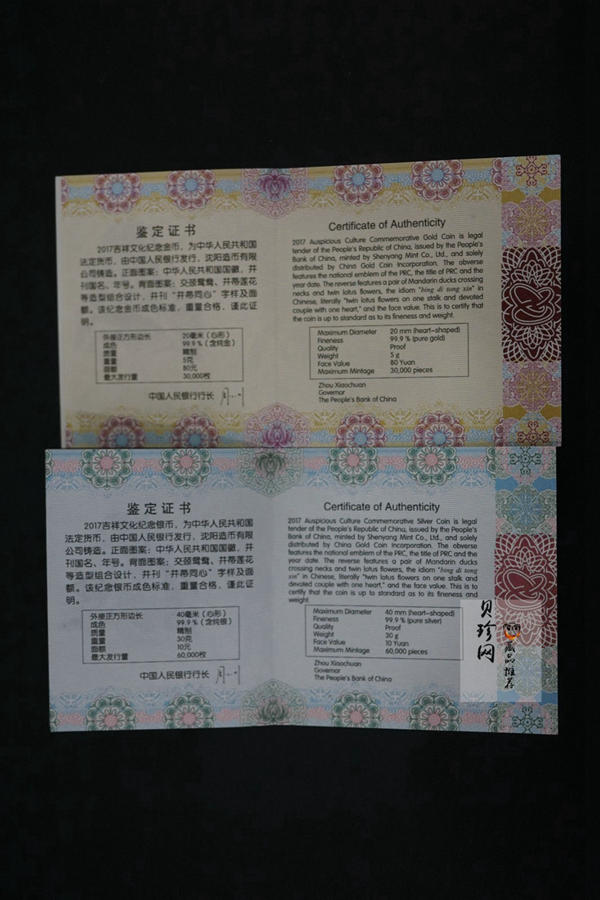 鉴定证书
2017吉祥文化纪念金币，为中华人民共和国
法定货币，由中国人民银行发行，沈阳造币有限
公司铸造。正面图案：中华人民共和国国徽，并
刊国名、年号。背面图案：交颈鸳鸯、并蒂莲花
等造型组合设计，并刊“并蒂同心”字样及面
额。该纪念金币成色标准，重量合格，谨此证
明。
外接正方形边长 20毫米（心形）
成色 99.9％（含纯金）
质量 精制
重量 5克
面额 80元
最大发行量 30,000枚
中国人民银行行长
Certificate of Authenticity
2017 Auspicious Culture Commemorative Gold Coin is legal
tender of the People's Republic of China, issued by the People's
Bank of China, minted by Shenyang Mint Co., Ltd., and solely
distributed by China Gold Coin Incorporation. The obverse
features the national emblem of the PRC, the title of PRC and the
year date. The reverse features a pair of Mandarin ducks crossing
necks and twin lotus flowers, the idiom "bing di tong xin" in
Chinese, literally "twin lotus flowers on one stalk and devoted
couple with one heart," and the face value. This is to certify that
the coin is up to standard as to its fineness and weight.
Maximum Diameter 20 mm (heart-shaped)
Fineness 99.9 % (pure gold)
Quality Proof
Weight 5 g
Face Value 80 Yuan
Maximum Mintage 30,000 pieces
Zhou Xiaochuan
Governor
The People's Bank of China
鉴定证书
2017吉祥文化纪念银币，为中华人民共和国
法定货币，由中国人民银行发行，沈阳造币有限
公司铸造。正面图案：中华人民共和国国徽，并
刊国名、年号。背面图案：交颈鸳鸯、并蒂莲花
等造型组合设计，并刊“并蒂同心”字样及面
额。该纪念银币成色标准，重量合格，谨此证
明。
外接正方形边长 40毫米（心形）
成色 99.9％（含纯银）
质量 精制
重量 30克
面额 10元
最大发行量 60,000枚
中国人民银行行长
Certificate of Authenticity
2017 Auspicious Culture Commemorative Silver Coin is legal
tender of the People's Republic of China, issued by the People's
Bank of China, minted by Shenyang Mint Co., Ltd., and solely
distributed by China Gold Coin Incorporation. The obverse
features the national emblem of the PRC, the title of PRC and the
year date. The reverse features a pair of Mandarin ducks
crossing necks and twin lotus flowers, the idiom "bing di tong
xin" in Chinese, literally "twin lotus flowers on one stalk and
devoted couple with one heart," and the face value. This is to
certify that the coin is up to standard as to its fineness and
weight.
Maximum Diameter 40 mm (heart-shaped)
Fineness 99.9 % (pure silver)
Quality Proof
Weight 30 g
Face Value 10 Yuan
Maximum Mintage 60,000 pieces
Zhou Xiaochuan
Governor
The People's Bank of China
贝珍网
藏品推荐